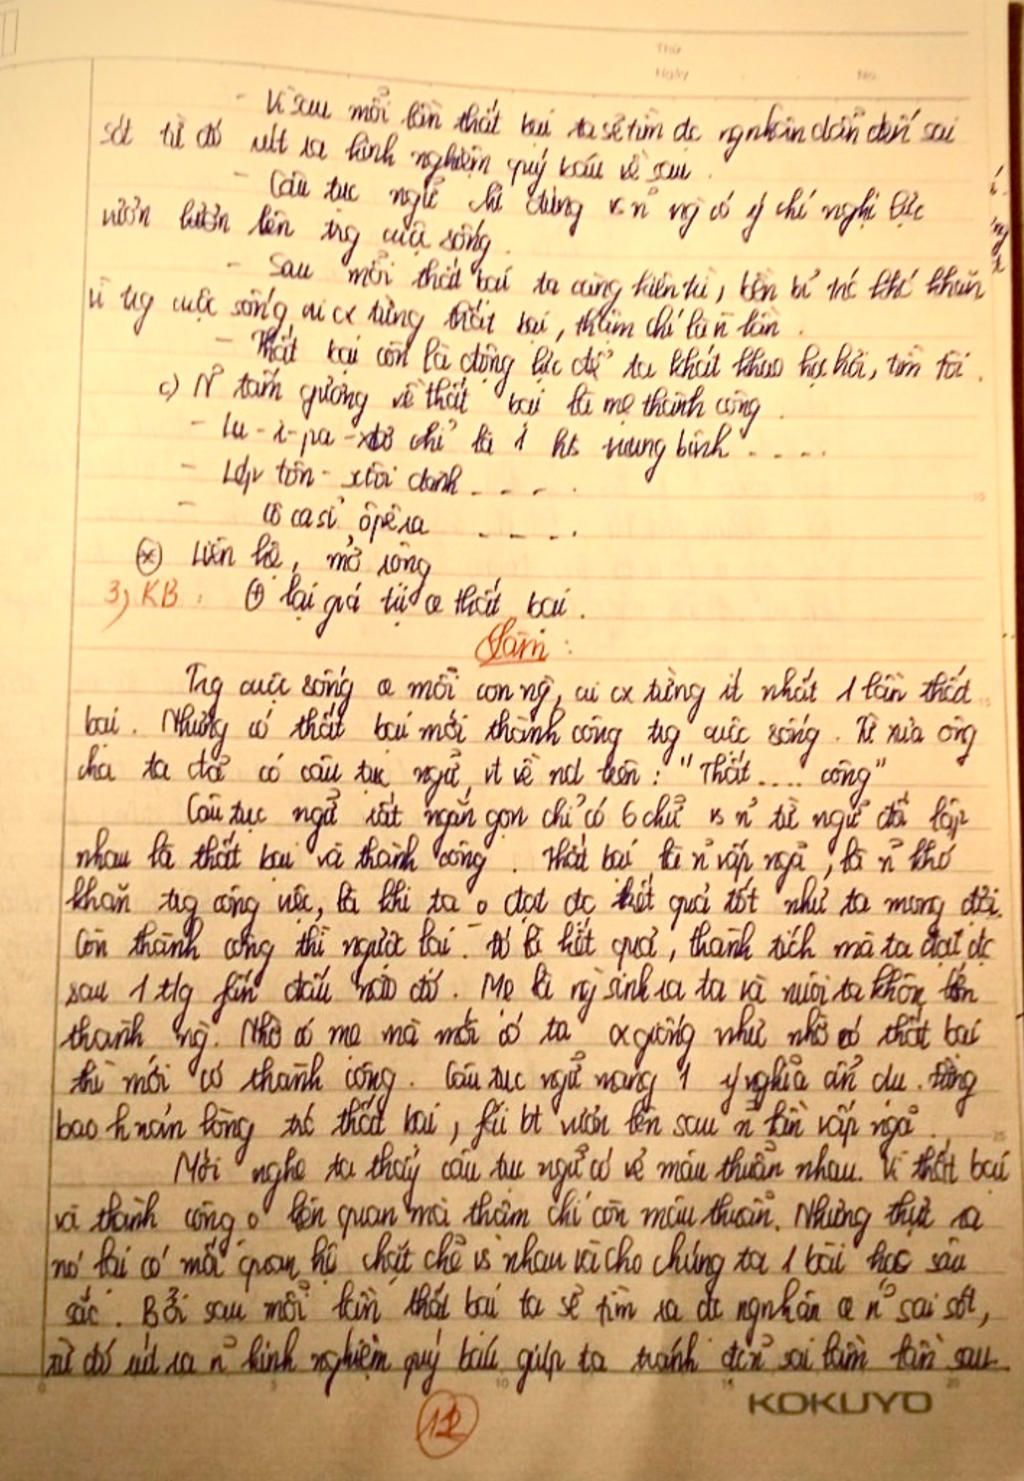 Thứ
Ngày No.
- Vì sau mỗi lần thất bại ta sẽ tìm đc ngnhân dẫn đến sai
sót từ đó rút ra kinh nghiệm quý báu về sau.
- Câu tục ngữ chỉ đúng vs n~ ng có ý chí nghị lực
vươn lên trg cuộc sống.
- Sau mỗi thất bại ta càng kiên trì, bền bỉ trc khó khăn
vì trg cuộc sống ai cx từng thất bại, thậm chí là n lần.
- Thất bại còn là động lực để ta khát khao học hỏi, tìm tòi.
c) N~ tấm gương về thất bại là mẹ thành công.
- Lu-i-pa-xtơ chỉ là 1 hs trung bình ....
- Lép tôn-xtôi đành ....
- Ca sĩ ôpêra ....
(*) Liên hệ, mở rộng
3) KB: (+) lại giá trị of thất bại.
Làm:
Trg cuộc sống of mỗi con ng, ai cx từng ít nhất 1 lần thất
bại. Nhưng có thất bại mới thành công trg cuộc sống. Từ xưa ông
cha ta đã có câu tục ngữ vt về nd trên: "Thất .... công"
Câu tục ngữ rất ngắn gọn chỉ có 6 chữ vs n~ từ ngữ đối lập
nhau là thất bại và thành công. Thất bại là n~ vấp ngã, là n~ khó
khăn trg công việc, là khi ta o đạt đc kết quả tốt như ta mong đợi.
Còn thành công thì ngược lại. Đó là kết quả, thành tích mà ta đạt đc
sau 1 t/g fấn đấu nào đó. Mẹ là ng sinh ra ta và nuôi ta khôn lớn
thành ng. Nhờ có mẹ mà mới có ta cx giống như nhờ có thất bại
thì mới có thành công. Câu tục ngữ mang 1 ý nghĩa ẩn dụ. Đừng
bao h nản lòng trc thất bại, fải bt vươn lên sau n~ lần vấp ngã.
Mới nghe ta thấy câu tục ngữ có vẻ mâu thuẫn nhau. Vì thất bại
và thành công o liên quan mà thậm chí còn mâu thuẫn. Nhưng thực ra
nó lại có mối quan hệ chặt chẽ vs nhau và cho chúng ta 1 bài học sâu
sắc. Bởi sau mỗi lần thất bại ta sẽ tìm ra đc ngnhân of n~ sai sót,
từ đó rút ra n~ kinh nghiệm quý báu giúp ta tránh đc n~ sai lầm lần sau
KOKUYO